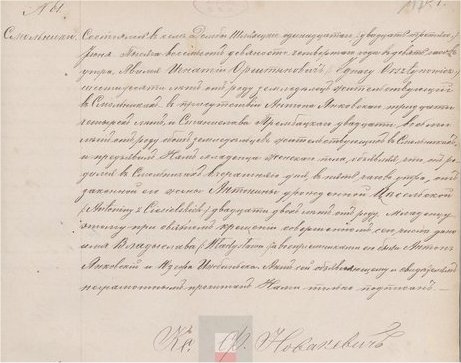 № 61.
Смольники.
Состоялось въ селѣ Дембѣ Шляхецкомъ одинадцатаго / двадцать третьяго /
Іюня тысяча восемьсотъ девяносто четвертаго года въ девять часовъ
утра. Явился Игнатій Орштыновичъ / Ignacy Orsztynowicz /
шестидесяти лѣтъ отъ роду земледѣлецъ жительствующій
въ Смольникахъ въ присутствіи Антона Янковскаго тридцати
четырехъ лѣтъ и Станислава двадцати восьми
лѣтъ отъ роду обоихъ земледѣльцевъ жительствующихъ въ Смольникахъ,
и предъявилъ Намъ младенца женскаго пола, объявляя, что онъ ро-
дился въ Смольникахъ вчерашняго дня, въ пять часовъ утра, отъ
законной его жены Антонины урожденной
/ Antoniny z / двадцати двухъ лѣтъ отъ роду. Младенцу
этому при святомъ крещеніи совершенномъ сего числа дано
имя Владислава / Władysława / а воспріемниками его были Антонъ
Янковскій и Юзефа Актъ сей объявляющему и свидѣтелямъ
неграмотнымъ прочитанъ Нами только подписанъ.
Кс. Ф. Новаковичъ